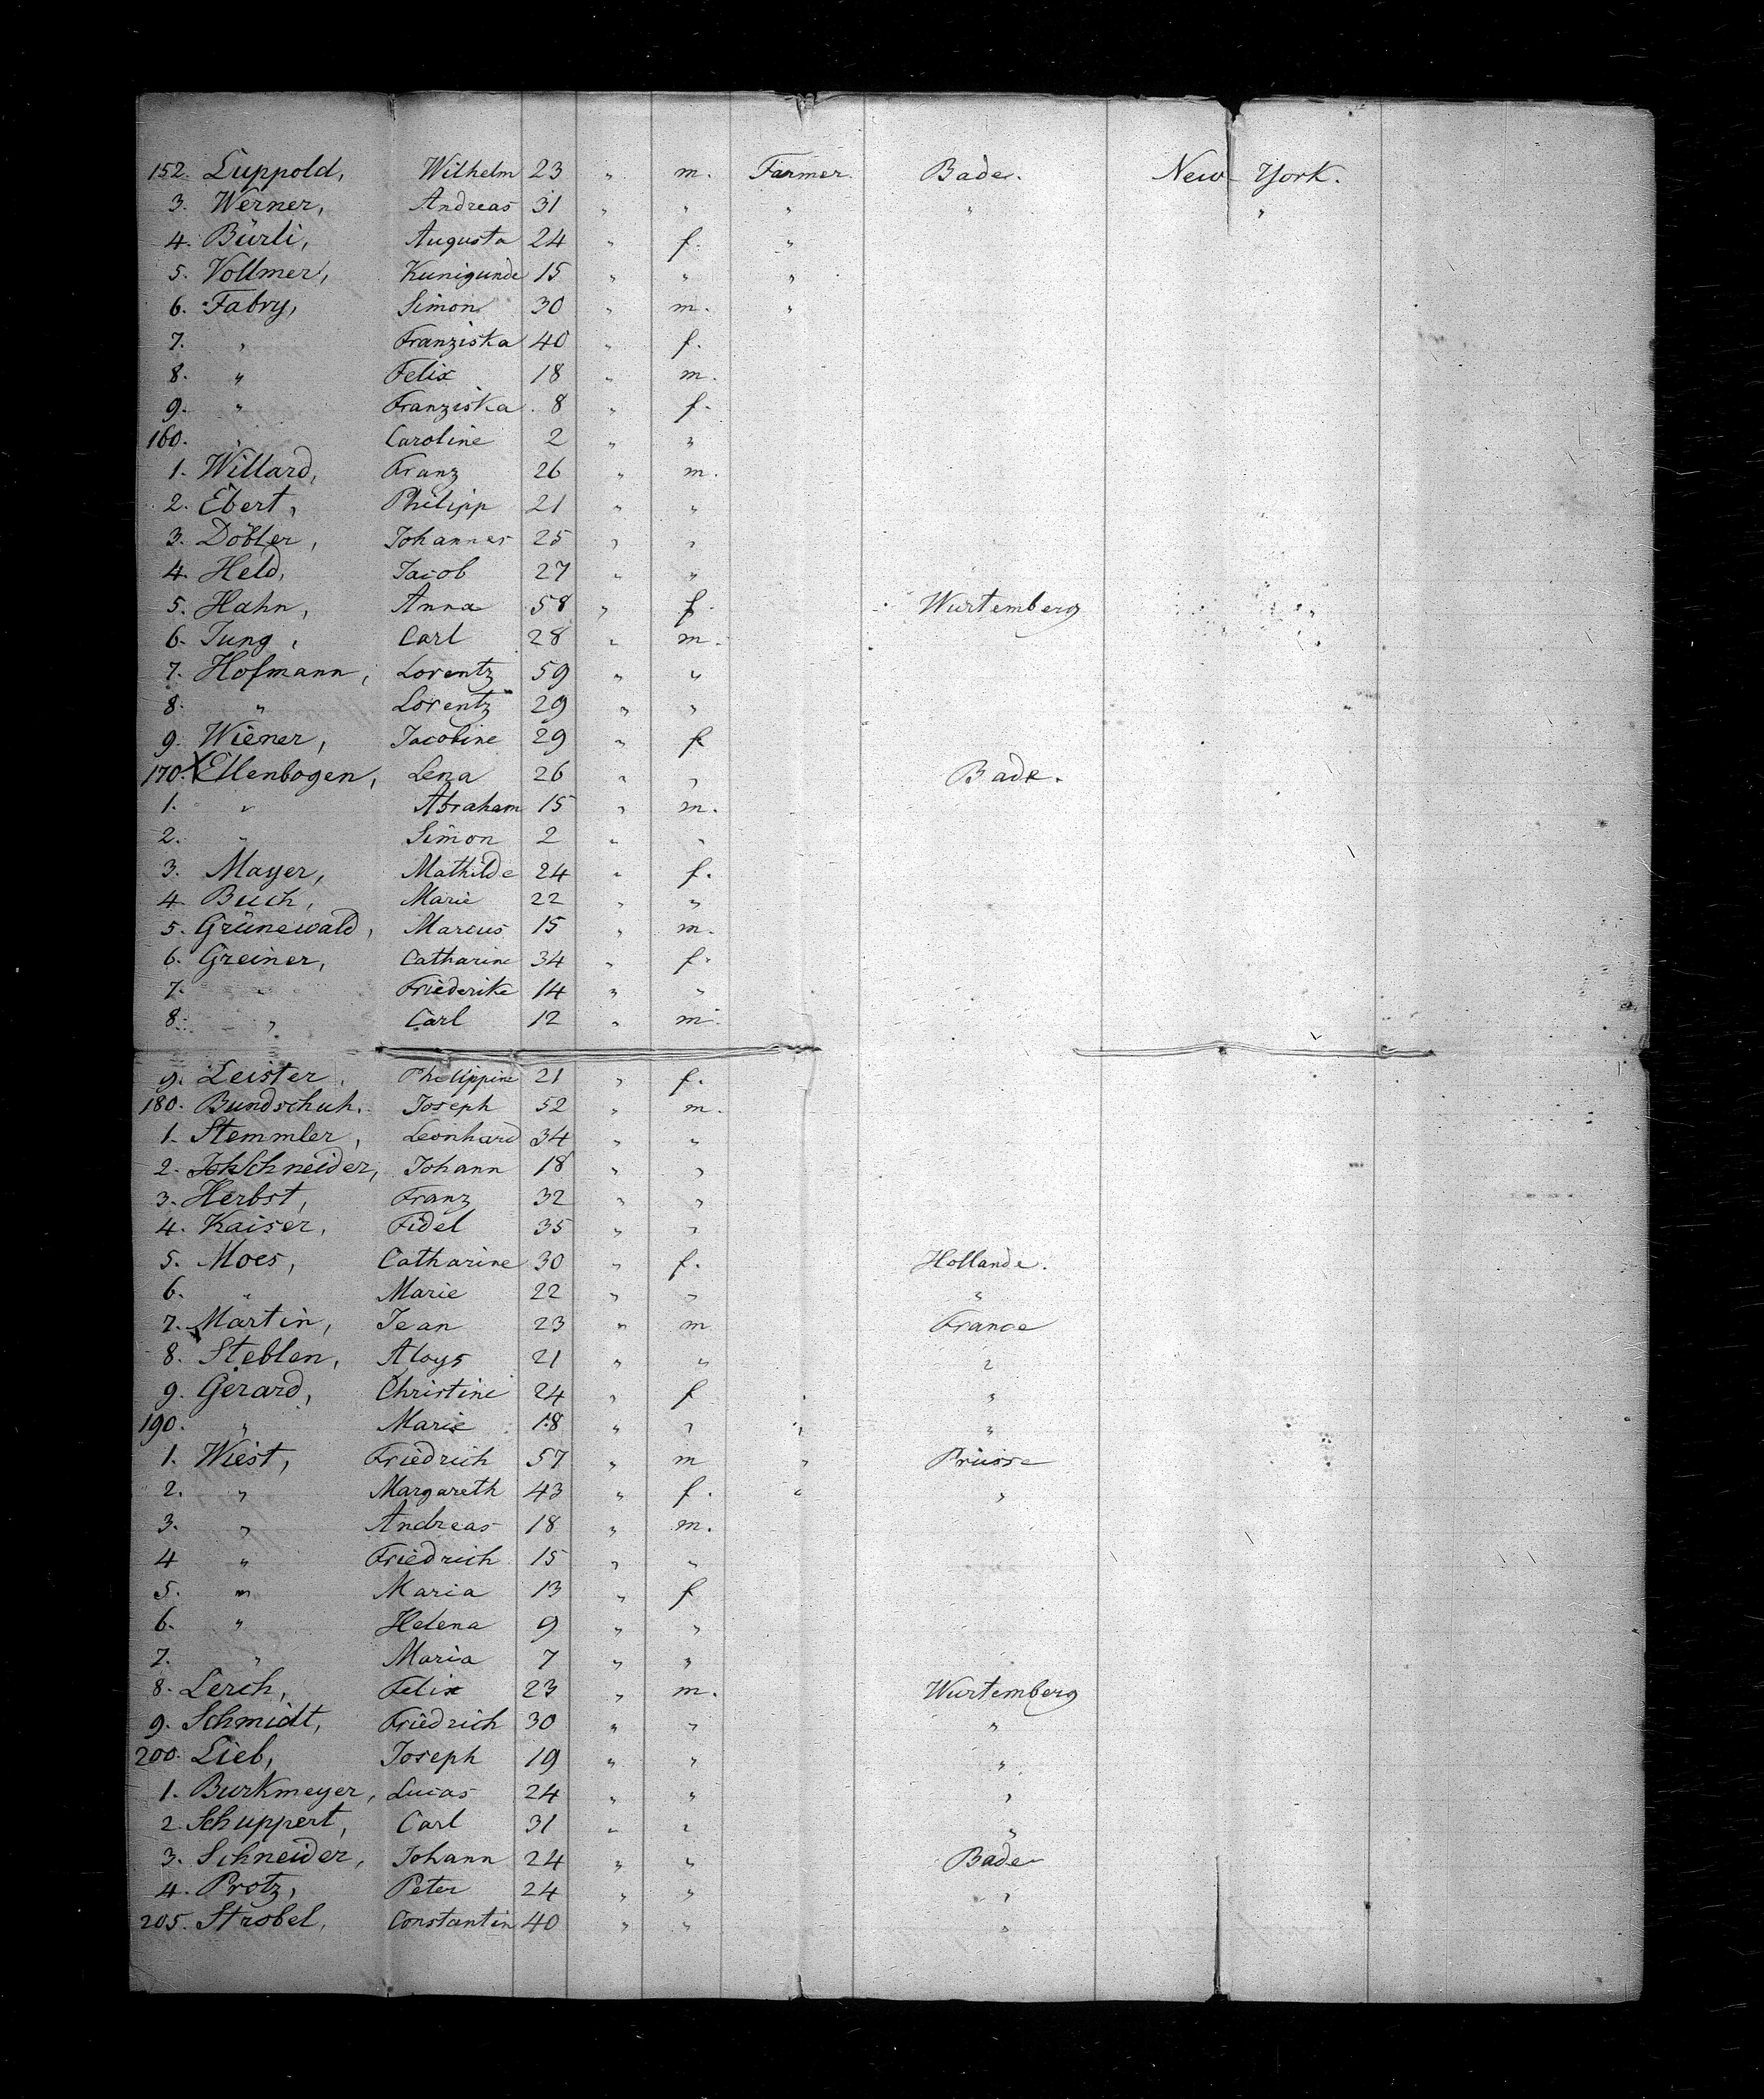 152. Luppold, Wilhelm 23 " m. Farmer. Bade. New York.
3. Werner, Andreas 31 " " " " "
4. Bürli, Augusta 24 " f. "
5. Vollmer, Kunigunde 15 " " "
6. Fabry, Simon 30 " m. "
7. " Franziska 40 " f.
8. " Felix 18 " m.
9. " Franziska 8 " f.
160. " Caroline 2 " "
1. Willard, Franz 26 " m.
2. Ebert, Philipp 21 " "
3. Döbler, Johannes 25 " "
4. Held, Jacob 27 " "
5. Hahn, Anna 58 " f. Wurtemberg "
6. Jung, Carl 28 " m.
7. Hofmann, Lorentz 59 " "
8. " Lorentz 29 " "
9. Wiener, Jacobine 29 " f
170. Ellenbogen, Lena 26 " " Bade.
1. " Abraham 15 " m.
2. " Simon 2 " "
3. Mayer, Mathilde 24 " f.
4. Buch, Marie 22 " "
5. Grünewald, Marcus 15 " m.
6. Greiner, Catharine 34 " f.
7. " Friederike 14 " "
8. " Carl 12 " m.
9. Leister, Philippine 21 " f.
180. Bundschuh, Joseph 52 " m.
1. Stemmler, Leonhard 34 " "
2. Schneider, Johann 18 " "
3. Herbst, Franz 32 " "
4. Kaiser, Fidel 35 " "
5. Moes, Catharine 30 " f. Hollande.
6. " Marie 22 " " "
7. Martin, Jean 23 " m France
8. Steblen, Aloys 21 " " "
9. Gerard, Christine 24 " f "
190. " Marie 18 " " " "
1. Wiest, Friedrich 57 " m " Prusse
2. " Margareth 43 " f. " "
3. " Andreas 18 " m.
4 " Friedrich 15 " "
5. " Maria 13 " f
6. " Helena 9 " "
7. " Maria 7 " "
8. Lerch, Felix 23 " m. Wurtemberg
9. Schmidt, Friedrich 30 " " "
200. Lieb, Joseph 19 " " "
1. Burkmeyer, Lucas 24 " " "
2. Schuppert, Carl 31 " " "
3. Schneider, Johann 24 " " Bade
4. Protz, Peter 24 " " "
205. Strobel, Constantin 40 " " "